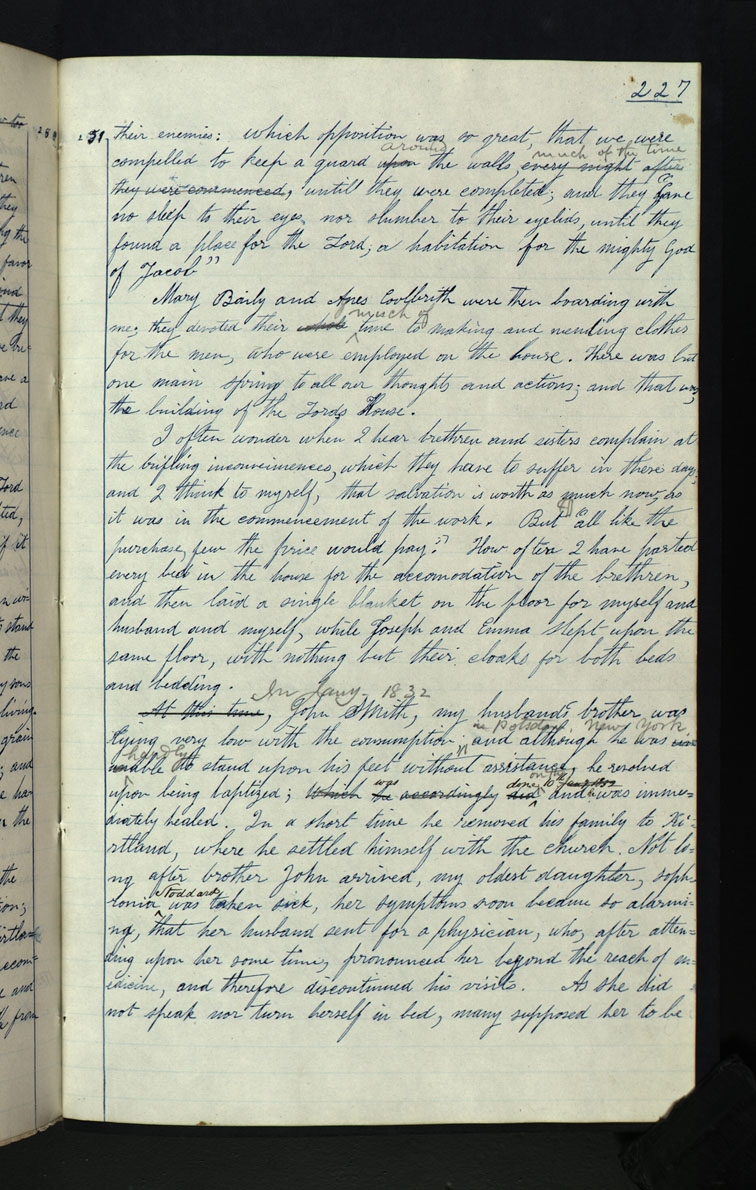 227
251
their enemies: which opposition was so great, that we were
around much of the time
compelled to keep a guard upon the walls, every night after
they were commenced, until they were completed; and they "gave
no sleep to their eyes, nor slumber to their eyelids, until they
found a place for the Lord; a habitation for the mighty God
of Jacob"
Mary Baily and Anes Coolbrith were then boarding with
much of
me; they devoted their whole time to making and mending clothes
for the men, who were employed on the house. There was but
one main spring to all our thoughts and actions; and that was,
the building of the Lords House.
I often wonder when I hear brethren and sisters complain at
the trifling inconveniences, which they have to suffer in these days,
and I think to myself, that salvation is worth as much now, as
it was in the commencement of the work. But "all like the
purchase, few the price would pay." How often I have parted
every bed in the house for the accomodation of the brethren,
and then laid a single blanket on the floor for myself and
husband and myself, while Joseph and Emma slept upon the
same floor, with nothing but their cloaks for both beds
and bedding.
In Jany 1832
At this time, John Smith, my husband's brother, was
in Potsdam, New York
lying very low with the consumption; and although he was
hardly
unable to stand upon his feet without assistance, he resolved
was done on the 10
upon being baptized; Which be accordingly did and was imme=
diately healed. In a short time he removed his family to Ki=
rtland, where he settled himself with the church. Not lo=
ng after brother John arrived, my oldest daughter, soph=
Stoddard
ronia was taken sick, her symptoms soon became so alarmi=
ng, that her husband sent for a physician, who, after atten=
ding upon her some time, pronounced her beyond the reach of m=
edicine, and therefore discontinued his visits. As she did
not speak nor turn herself in bed, many supposed her to be